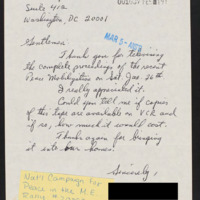 Suite 412
Washington, DC 20001
MAR 5
Gentlemen
Thank you for televising
the complete proceedings of the recent
Peace Mobilization on Sat. Jan. 26th
I really appreciated it.
Could you tell me if copies
of the tape are available on VCR and
if so, how much it would cost.
Thanks again for bringing
it into our homes!
Sincerely,
Nat'l Campaign for
Peace in the M.E.